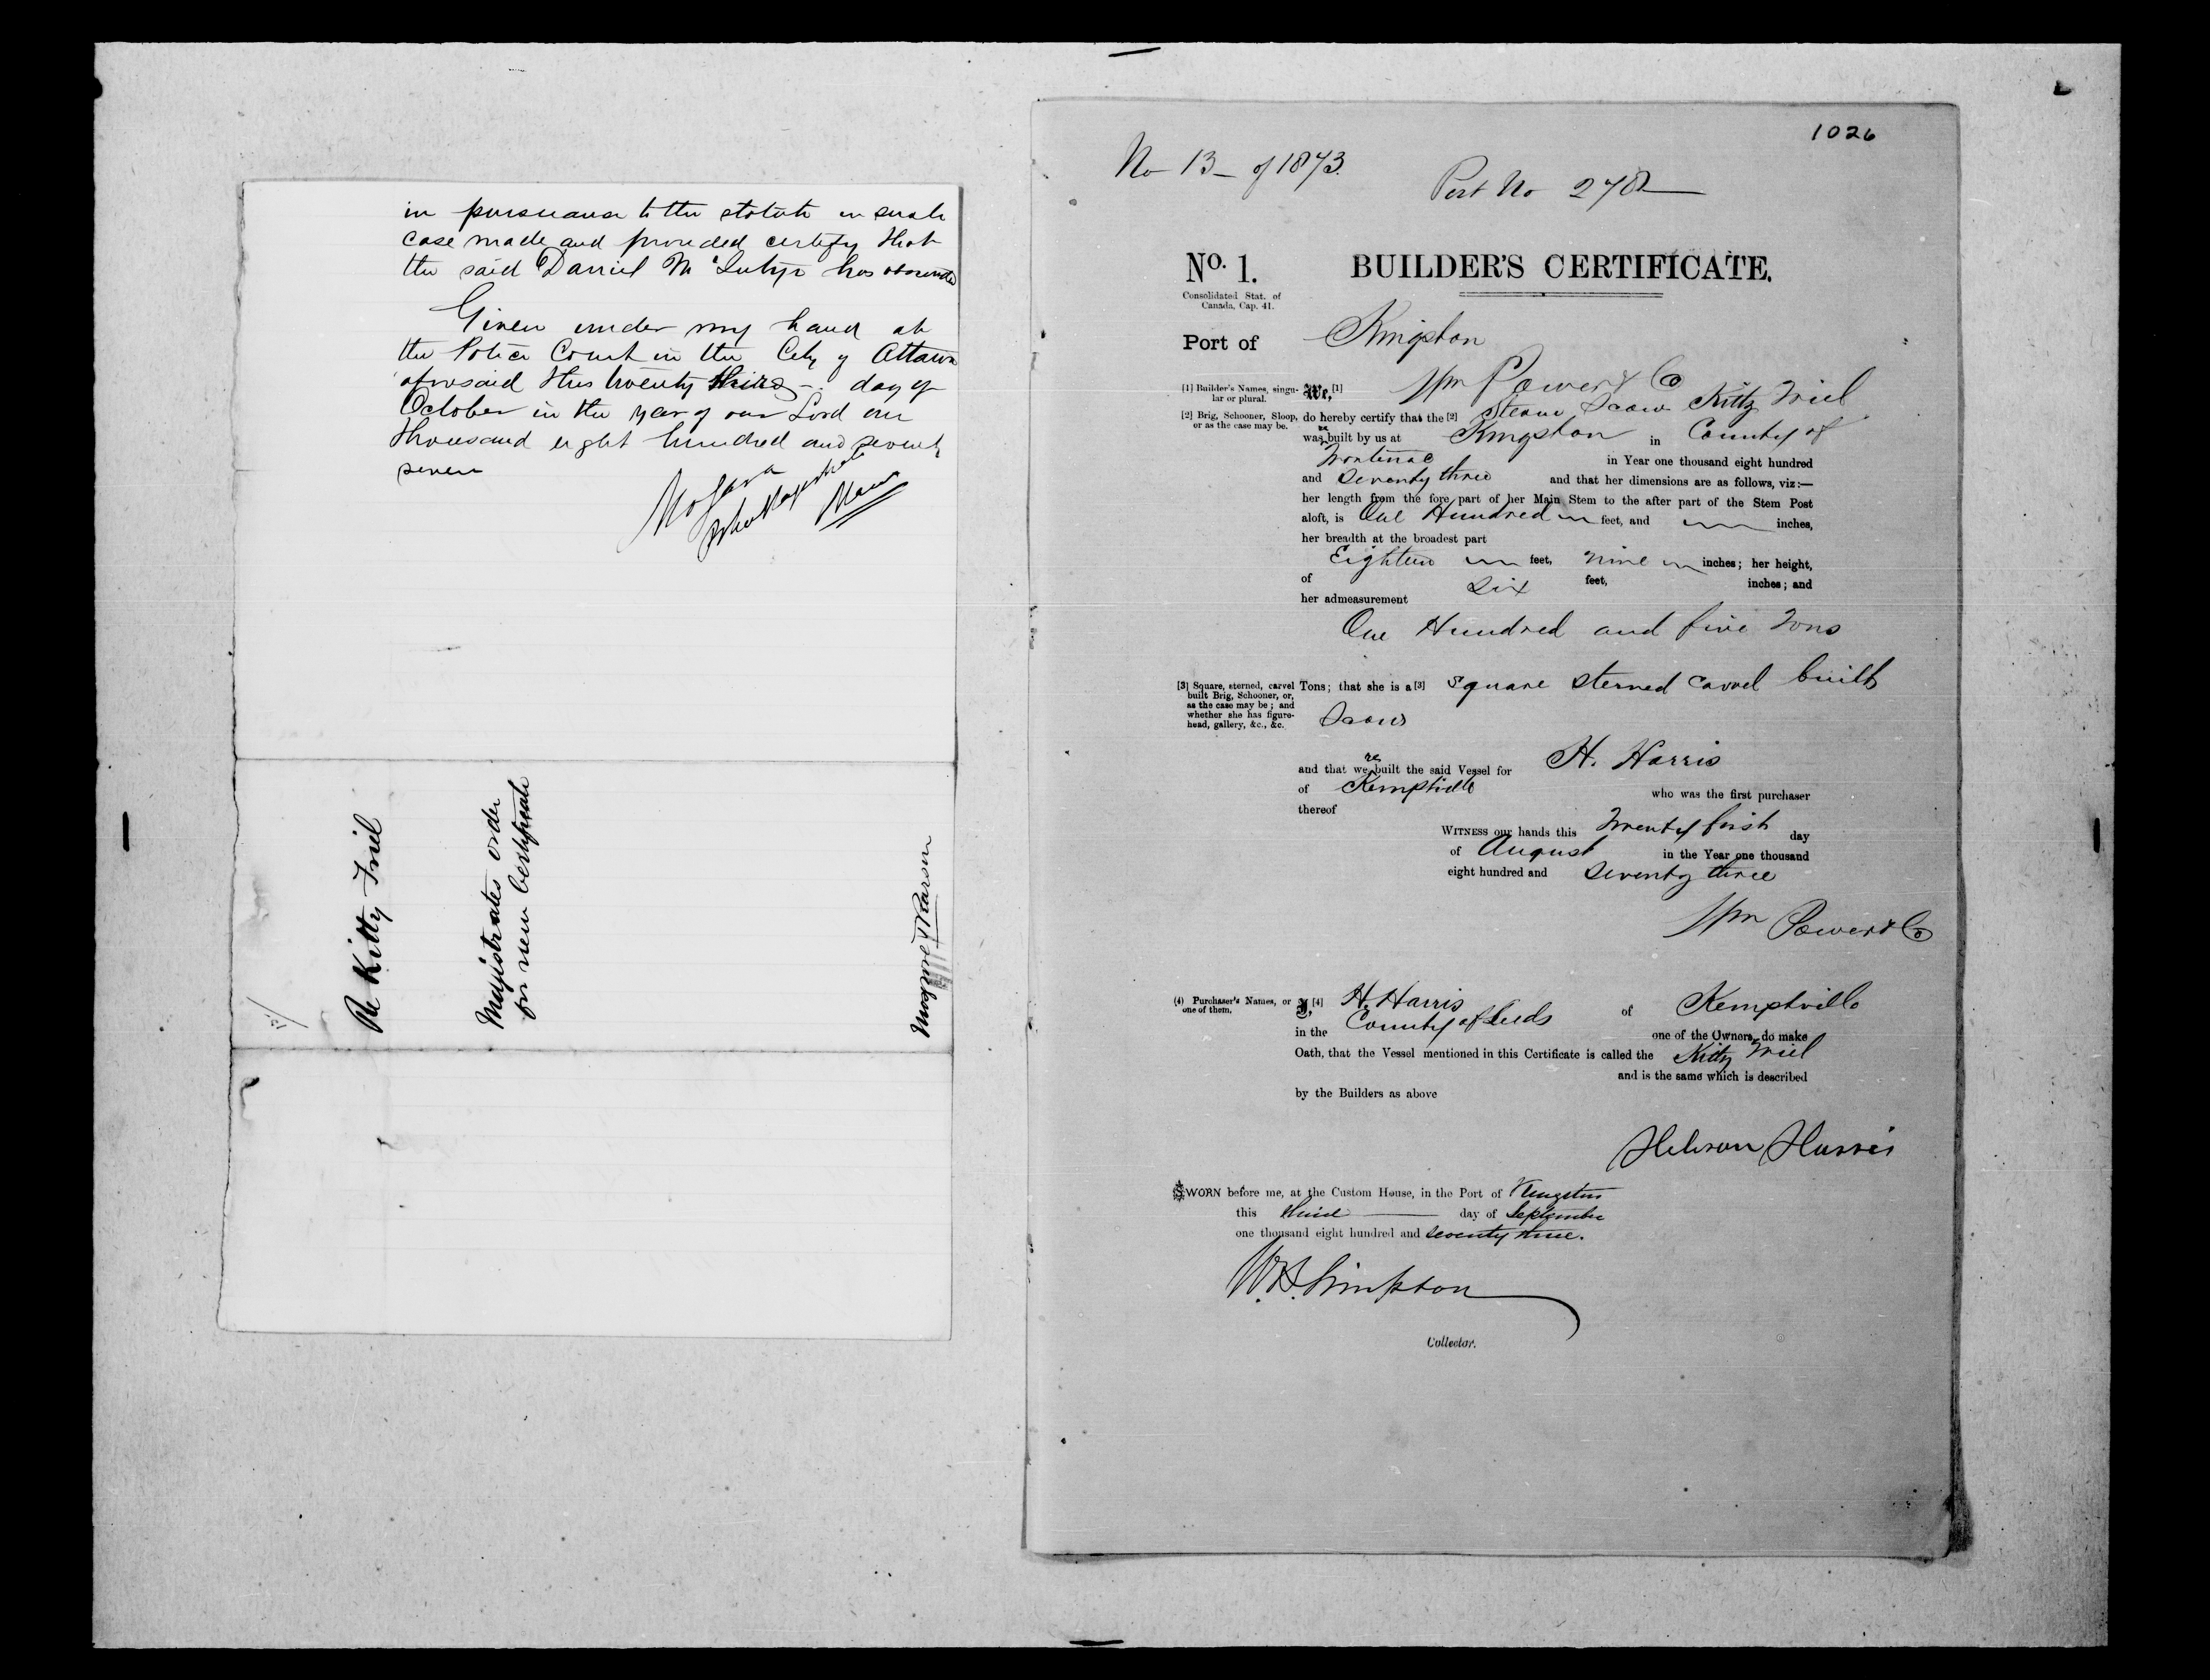 in pursuance to the statute in such
case made and provided certify that
the said Daniel McIntyre has absconded
Given under my hand at
the Police Court in the City of Ottawa
aforesaid this twenty third day of
October in the year of our Lord one
thousand eight hundred and seventy
seven
Re Kitty Friel
Magistrates order
for new certificate
1026
No 13 - of 1873.
Port No 278
No. 1.
BUILDER'S CERTIFICATE.
Consolidated Stat. of
Canada, Cap. 41.
Port of Kingston
[1] Builder's Names, singu-
lar or plural.
We, [1] Wm Power & Co
[2] Brig, Schooner, Sloop,
or as the case may be.
do hereby certify that the [2] Steam Scow Kitty Friel
was re built by us at Kingston in County of
Frontenac in Year one thousand eight hundred
and Seventy three and that her dimensions are as follows, viz:—
her length from the fore part of her Main Stem to the after part of the Stem Post
aloft, is One Hundred feet, and inches,
her breadth at the broadest part
Eighteen feet, nine inches; her height,
of Six feet, inches; and
her admeasurement
One Hundred and five Tons
[3] Square, sterned, carvel
built Brig, Schooner, or,
as the case may be; and
whether she has figure-
head, gallery, &c., &c.
Tons; that she is a [3] Square sterned carvel built
Scow
and that we re built the said Vessel for H. Harris
of Kemptville who was the first purchaser
thereof
WITNESS our hands this Twenty first day
of August in the Year one thousand
eight hundred and Seventy three
Wm Power & Co
(4) Purchaser's Names, or
one of them.
I, [4] H. Harris of Kemptville
in the County of Leeds one of the Owners, do make
Oath, that the Vessel mentioned in this Certificate is called the Kitty Friel
and is the same which is described
by the Builders as above
Harris
SWORN before me, at the Custom House, in the Port of Kingston
this third day of September
one thousand eight hundred and seventy three.
W.B. Simpson
Collector.